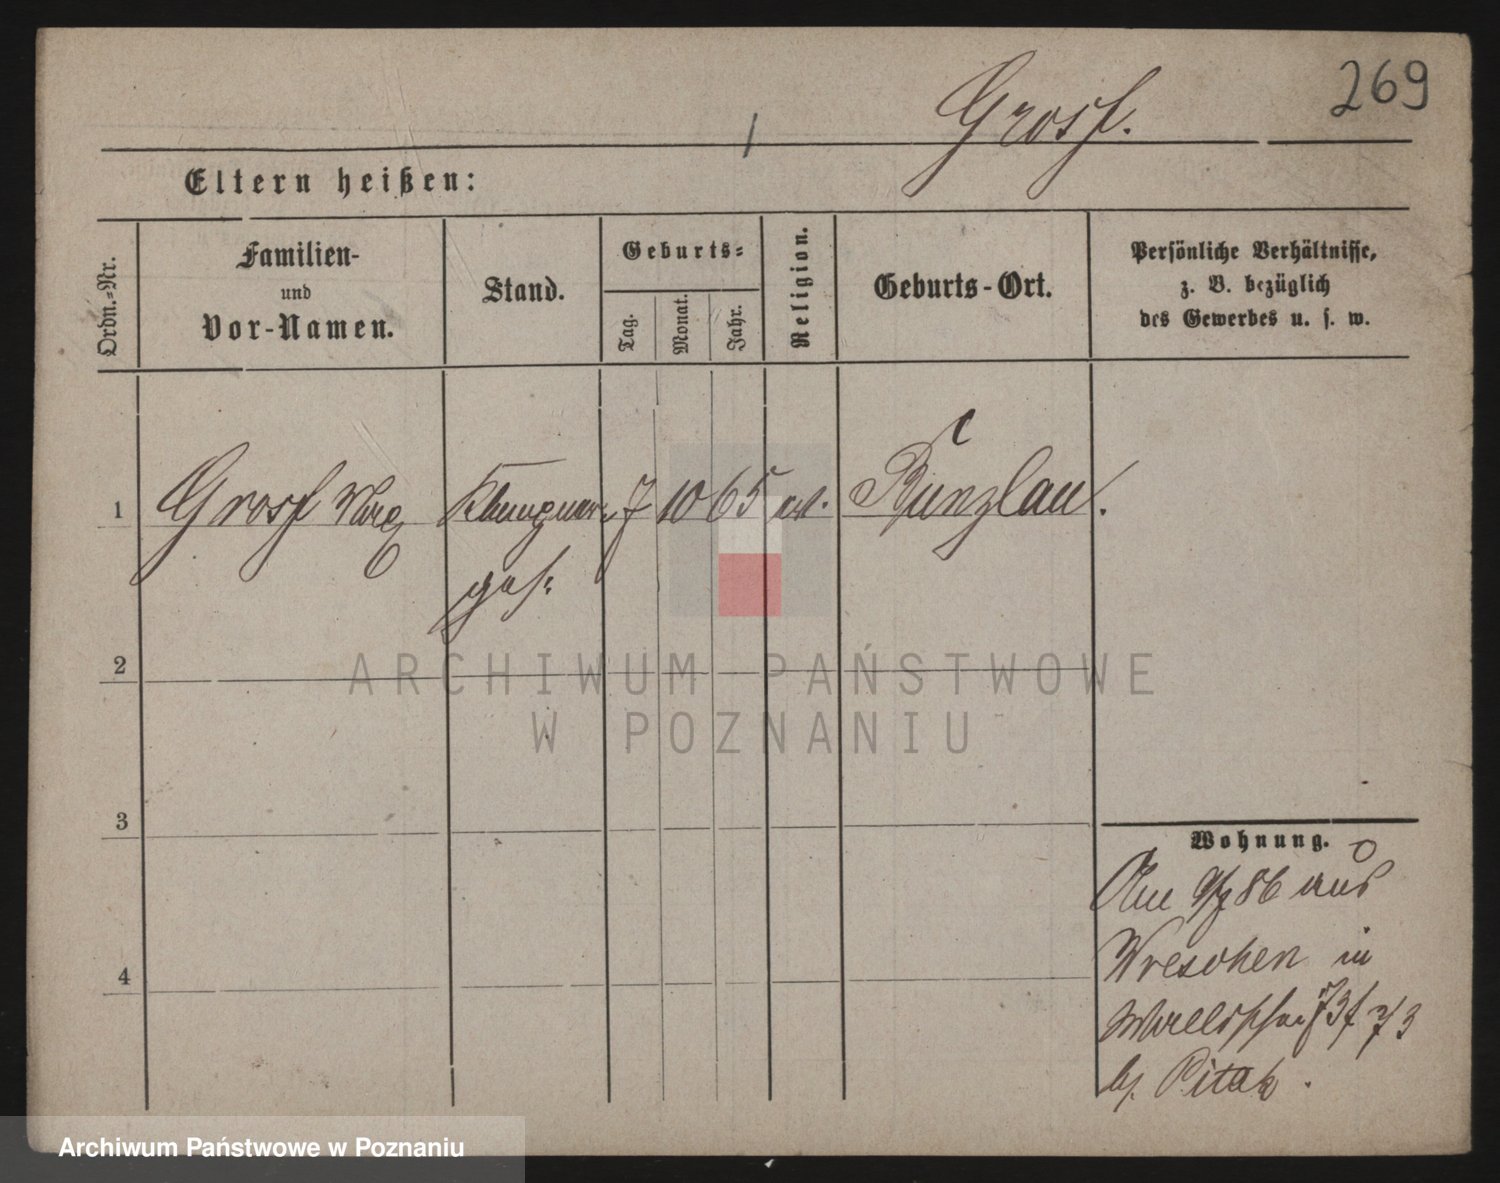 269
Grosf.
Eltern heißen:
Ordn.-Nr.
Familien-
und
Vor-Namen.
Stand.
Geburts-
Tag.
Monat.
Jahr.
Religion.
Geburts-Ort.
Persönliche Verhältnisse,
z. B. bezüglich
des Gewerbes u. s. w.
1 Grosf Klempner 7 10 65 Bunzlau.
2
3
4
ARCHIWUM PAŃSTWOWE
W POZNANIU
Wohnung.
86 aus
Wreschen in
73
b. Pitak.
Archiwum Państwowe w Poznaniu